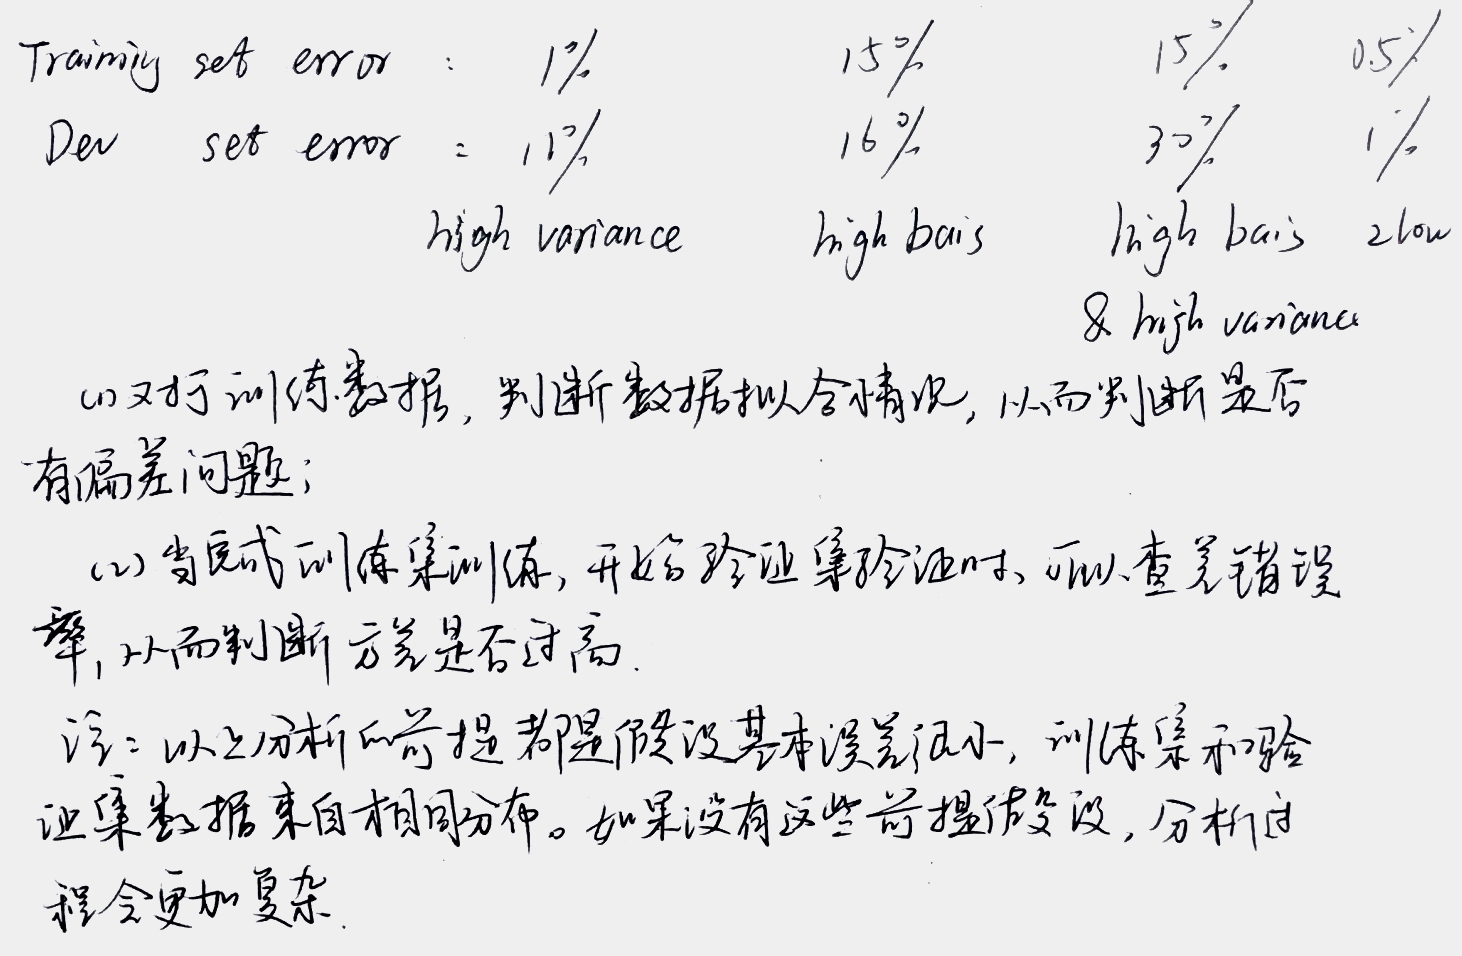 Training set error : 1% 15% 15% 0.5%
Dev set error : 11% 16% 30% 1%
high variance high bais high bais 2low
& high variance
(1)对于训练数据,判断数据拟合情况,从而判断是否
有偏差问题;
(2)当完成训练集训练,开始验证集验证时、可以查差错误
率,从而判断方差是否过高.
注:以上分析的前提都是假设基本误差很小,训练集和验
证集数据来自相同分布。如果没有这些前提假设,分析过
程会更加复杂.